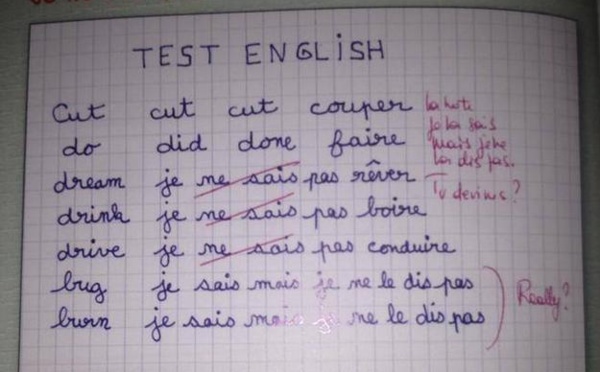 TEST ENGLISH
Cut cut cut couper
do did done faire
dream je ne sais pas rêver
drink je ne sais pas boire
drive je ne sais pas conduire
bug je sais mais je ne le dis pas
burn je sais mais je ne le dis pas
La note
je la sais
mais je ne
la dis pas.
Tu devines ?
Really ?